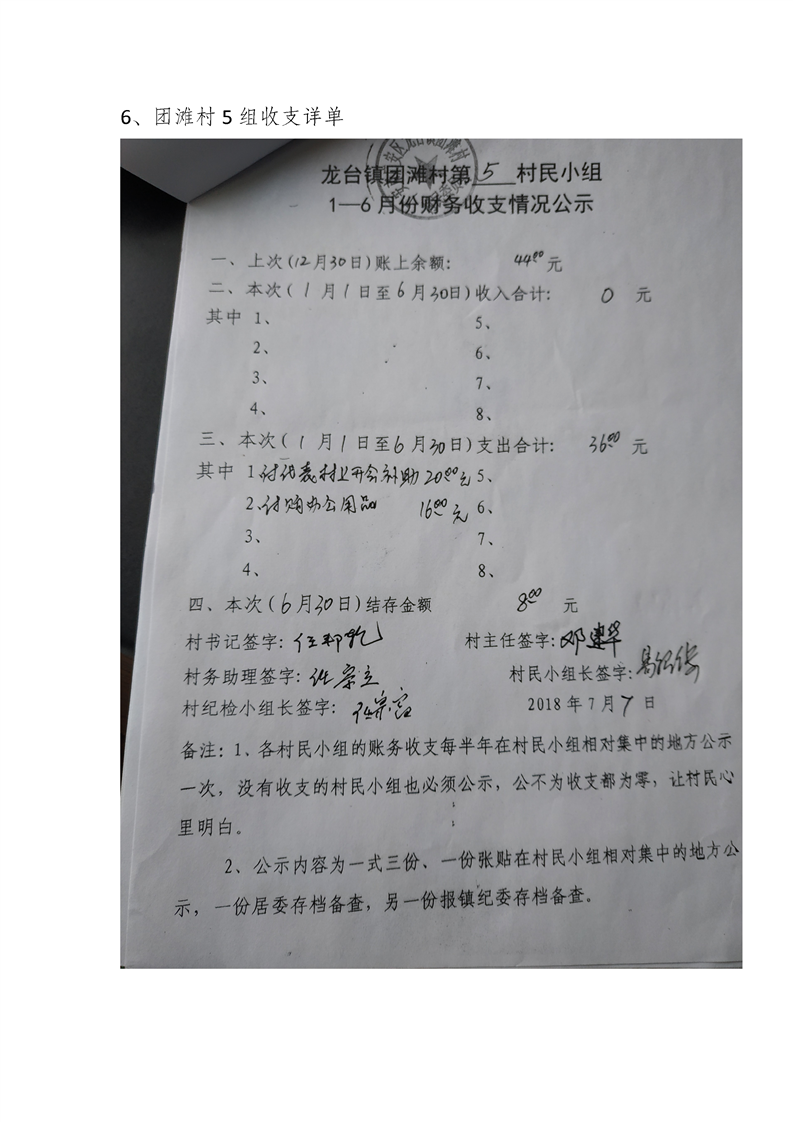 6、团滩村 5 组收支详单
龙台镇团滩村第 5 村民小组
1—6 月份财务收支情况公示
一、上次(12月30日)账上余额: 44.00 元
二、本次( 1 月 1 日至 6 月 30 日)收入合计: 0 元
其中 1、 5、
2、 6、
3、 7、
4、 8、
三、本次( 1 月 1 日至 6 月 30 日)支出合计: 36.00 元
其中 1、付代表村上开会补助 20.00元 5、
2、付购办公用品 16.00元 6、
3、 7、
4、 8、
四、本次( 6 月 30 日)结存金额 8.00 元
村书记签字: 村主任签字:邓建华
村务助理签字: 村民小组长签字:
村纪检小组长签字: 2018 年 7 月 7 日
备注:1、各村民小组的账务收支每半年在村民小组相对集中的地方公示
一次,没有收支的村民小组也必须公示,公不为收支都为零,让村民心
里明白。
2、公示内容为一式三份、一份张贴在村民小组相对集中的地方公
示,一份居委存档备查,另一份报镇纪委存档备查。